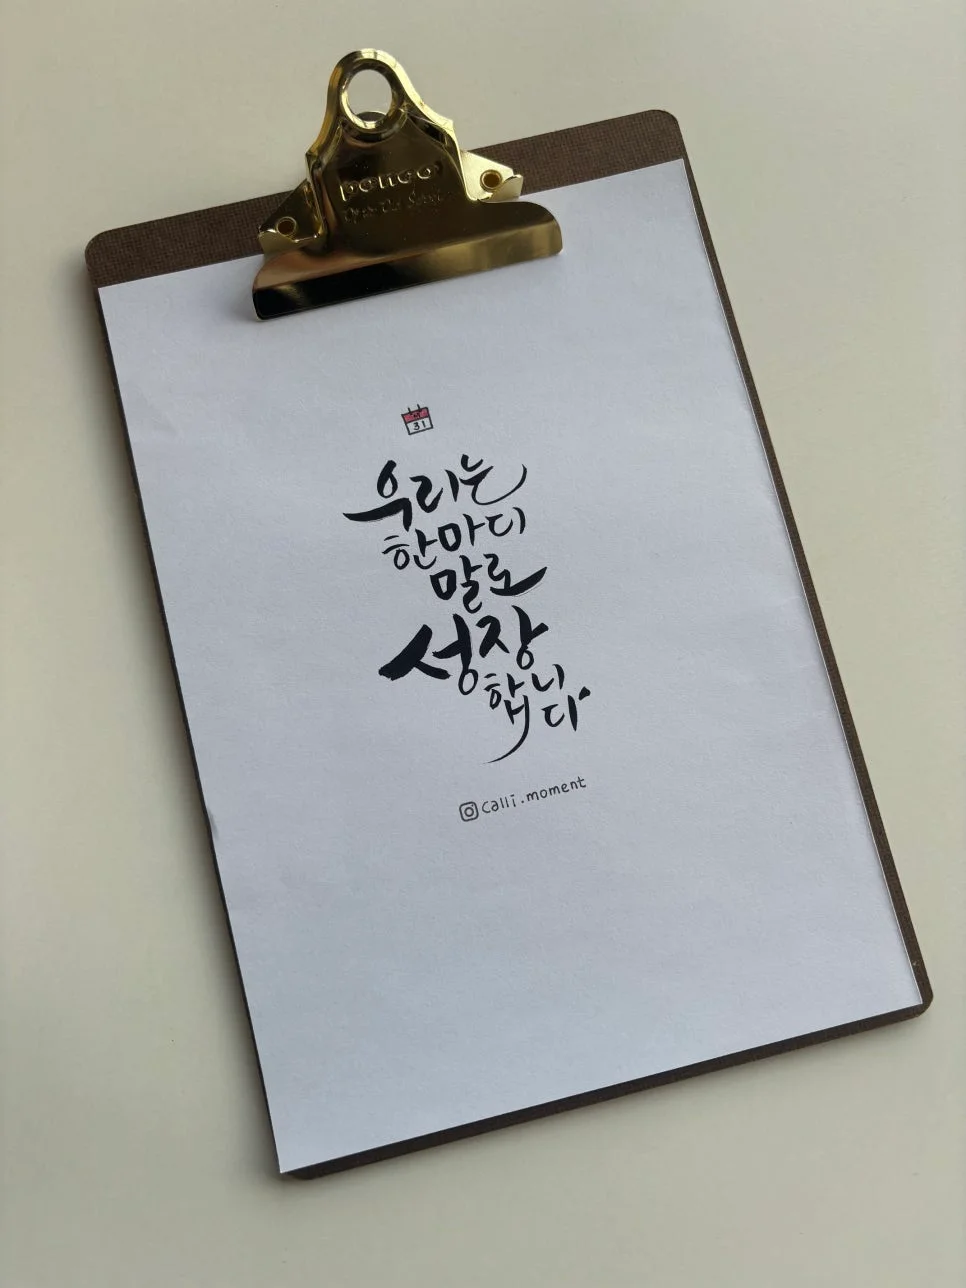 penco
31
우리는
한마디
말로
성장
합니다
calli.moment